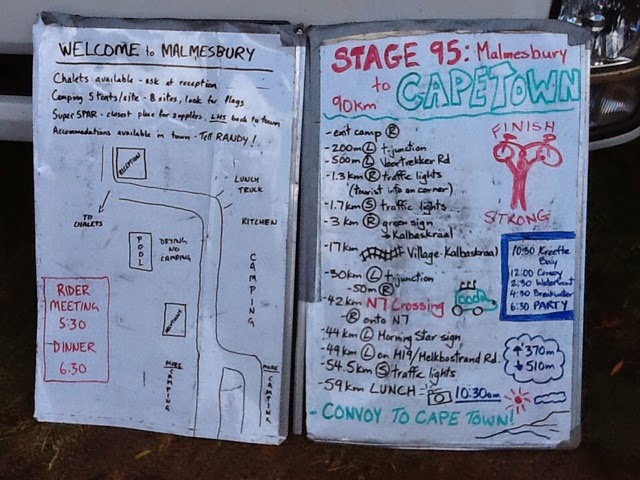 WELCOME to MALMESBURY
Chalets available - ask at reception
Camping 5 tents/site - 8 sites, look for flags
Super STAR - closest place for supplies, LHS back to town
Accommodations available in town - Tell RANDY!
RECEPTION
LUNCH TRUCK
TO CHALETS
KITCHEN
POOL
DRYING, NO CAMPING
CAMPING
RIDER
MEETING
5:30
DINNER
6:30
MORE CAMPING
MORE CAMPING
STAGE 95: Malmesbury
to CAPETOWN
90km
- exit camp R
- 200m L t-junction
- 500m L Voortrekker Rd
- 1.3km R traffic lights
(tourist info on corner)
- 1.7km S traffic lights
- 3km R green sign
→ Kalbaskraal
- 17km Village - Kalbaskraal
- 30km L t-junction
- 50m R
- 42km N7 Crossing
- R onto N7
- 44km L Morning Star sign
- 49km L on M19/Melkbostrand Rd.
- 54.5km S traffic lights
- 59km LUNCH 10:30am
- CONVOY TO CAPE TOWN!
FINISH
STRONG
10:30 Kreefte Bay
12:00 Convoy
2:30 Waterfront
4:30 Breakwater
6:30 PARTY
↑ 370m
↓ 510m